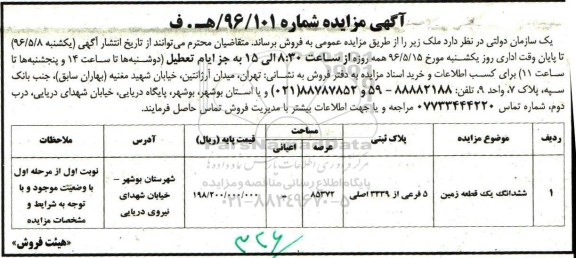 آگهی مزایده شماره ۹۶/۱۰۱/هـ. ف
یک سازمان دولتی در نظر دارد ملک زیر را از طریق مزایده عمومی به فروش برساند. متقاضیان محترم می‌توانند از تاریخ انتشار آگهی (یکشنبه ۹۶/۵/۸)
تا پایان وقت اداری روز یکشنبه مورخ ۹۶/۵/۱۵ همه روزه از ساعت ۸:۳۰ الی ۱۵ به جز ایام تعطیل (دوشنبه‌ها تا ساعت ۱۴ و پنجشنبه‌ها تا
ساعت ۱۱) برای کسب اطلاعات و خرید اسناد مزایده به دفتر فروش به نشانی: تهران، میدان آرژانتین، خیابان شهید مغنیه (بهاران سابق)، جنب بانک
سپه، پلاک ۷، واحد ۹، تلفن: ۸۸۸۸۲۱۸۸ – ۵۹ و ۸۸۷۸۷۸۵۲(۰۲۱) و یا استان بوشهر، بوشهر، پایگاه دریایی، خیابان شهدای دریایی، درب
دوم، شماره تماس ۰۷۷۳۳۴۴۴۲۲۰ مراجعه و یا جهت اطلاعات بیشتر با مدیریت فروش تماس حاصل فرمایند.
ردیف موضوع مزایده پلاک ثبتی مساحت قیمت پایه (ریال) آدرس ملاحظات
عرصه اعیانی
۱ ششدانگ یک قطعه زمین ۵ فرعی از ۳۳۳۹ اصلی ۸۵۳۷۲ ۱۹۸/۲۰۰/۰۰۰/۰۰۰ شهرستان بوشهر – خیابان شهدای نیروی دریایی نوبت اول از مرحله اول با وضعیت موجود و با توجه به شرایط و مشخصات مزایده
«هیئت فروش»
پایگاه اطلاع رسانی مناقصه و مزایده
۰۲۱-۸۸۳۴۹۶۷۰-۵
۳۲۶